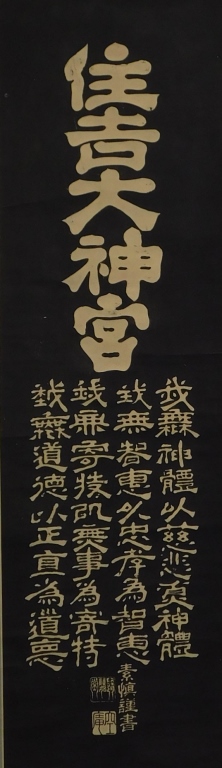 住吉大神宮
我無神體以慈悲爲神體
我無智惠以忠孝為智惠
我無奇特以無事為奇特
我無道德以正直為道悳
素慎謹書